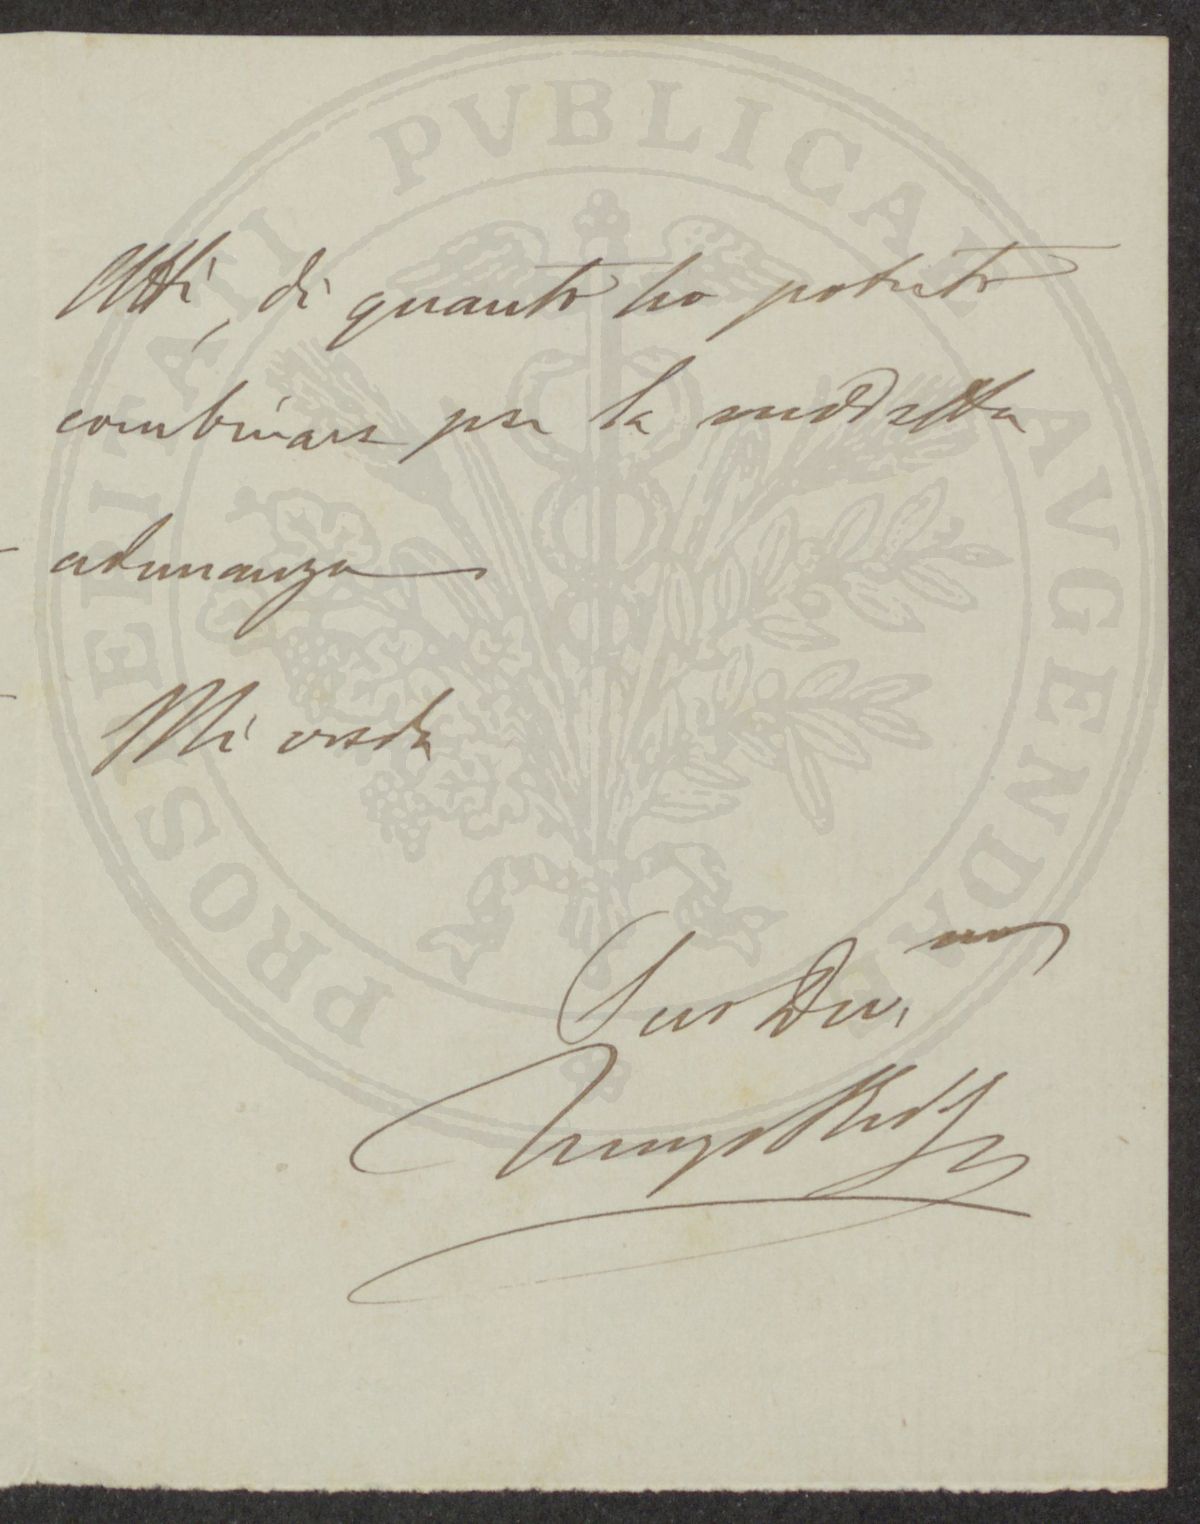 Atti, di quanto ho potuto
combinare per la suddetta
adunanza
Mi creda
Suo Dev.mo
PROSPERITATI PVBLICAE AVGENDAE